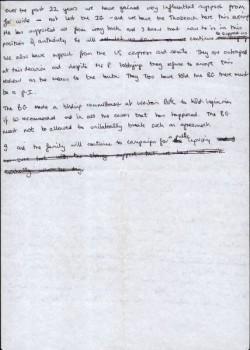 Over the past 22 years we have gained very influential support from
far + wide — not least the IG — and we have the Taoiseach here this event
He has supported us from very back and I know that now he is in this
position of authority he will continue to support us
We also have support from the US congress and senate. They are outraged
at this decision and despite the P lobbying they refuse to accept this
review as the means to the truth. They too have told the BG there must
be a p.I.
The BG made a binding commitment at Weston Park to hold inquiries
if so recommended and in all the cases that has happened. The BG
must not be allowed to unilaterally break such an agreement
I and the family will continue to campaign for a public inquiry